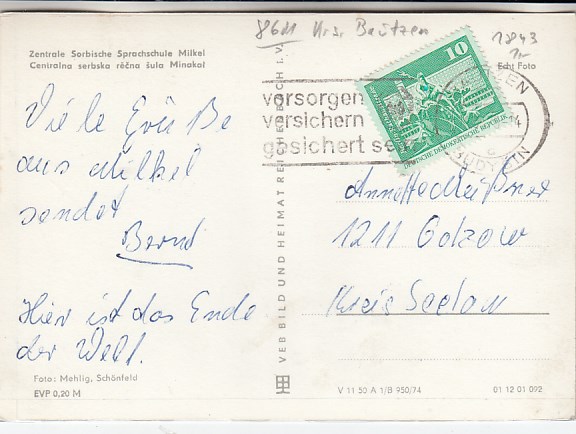 8611 Krs. Bautzen
1843
Zentrale Sorbische Sprachschule Milkel
Centralna serbska rěčna šula Minakał
Echt Foto
10
DEUTSCHE DEMOKRATISCHE REPUBLIK
vorsorgen
versichern
gesichert se
BUDYŠIN
Viele Grüße
aus Milkel
sendet
Bernd
Hier ist das Ende
der Welt.
Annette Meißner
1211 Golzow
Kreis Seelow
VEB BILD UND HEIMAT REICHENBACH I. V.
Foto: Mehlig, Schönfeld
EVP 0,20 M
V 11 50 A 1/B 950/74
01 12 01 092